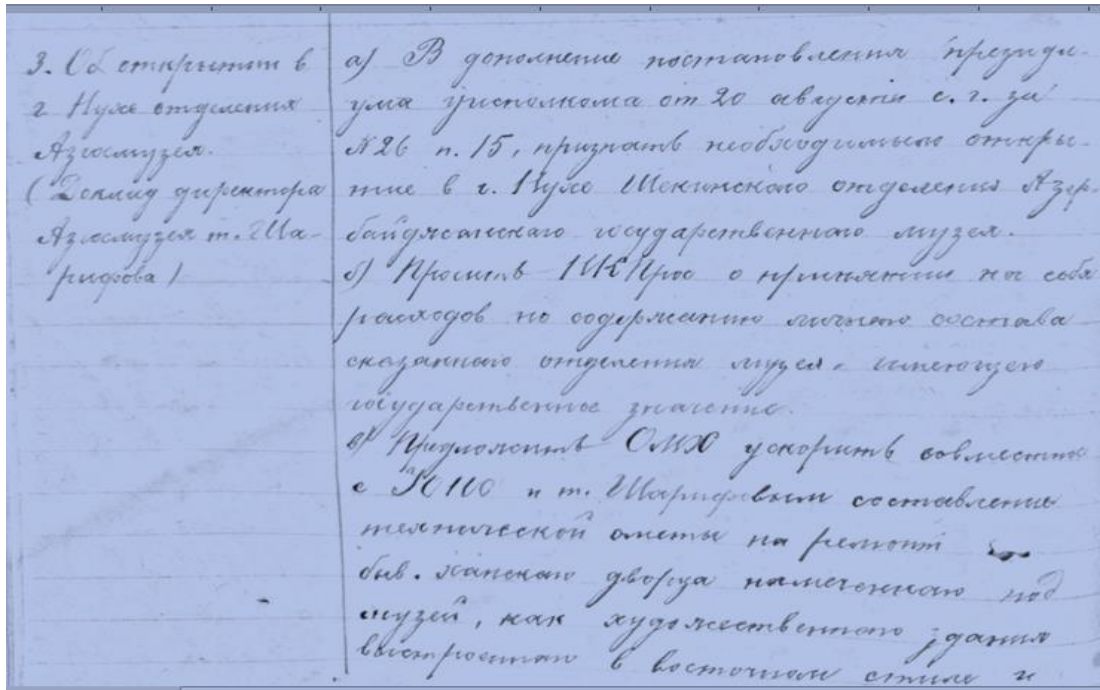 3. Об открытии в
г. Нухе отделения
Азгосмузея.
(Доклад директора
Азгосмузея т. Ша-
рифова)
а) В дополнение постановления президи-
ума уисполкома от 20 августа с. г. за
№26 п. 15, признать необходимым откры-
тие в г. Нухе Шекинского отделения Азер-
байджанскаго государственнаго музея.
б) Просить НКПрос о принятии на себя
расходов по содержанию личнаго состава
сказаннаго отделения музея, имеющего
государственное значение.
в) Предложить ОМХ ускорить совместно
с УОНО и т. Шарифовым составление
технической сметы на ремонт
быв. ханскаго дворца намеченнаго под
музей, как художественнаго здания
в восточном стиле и